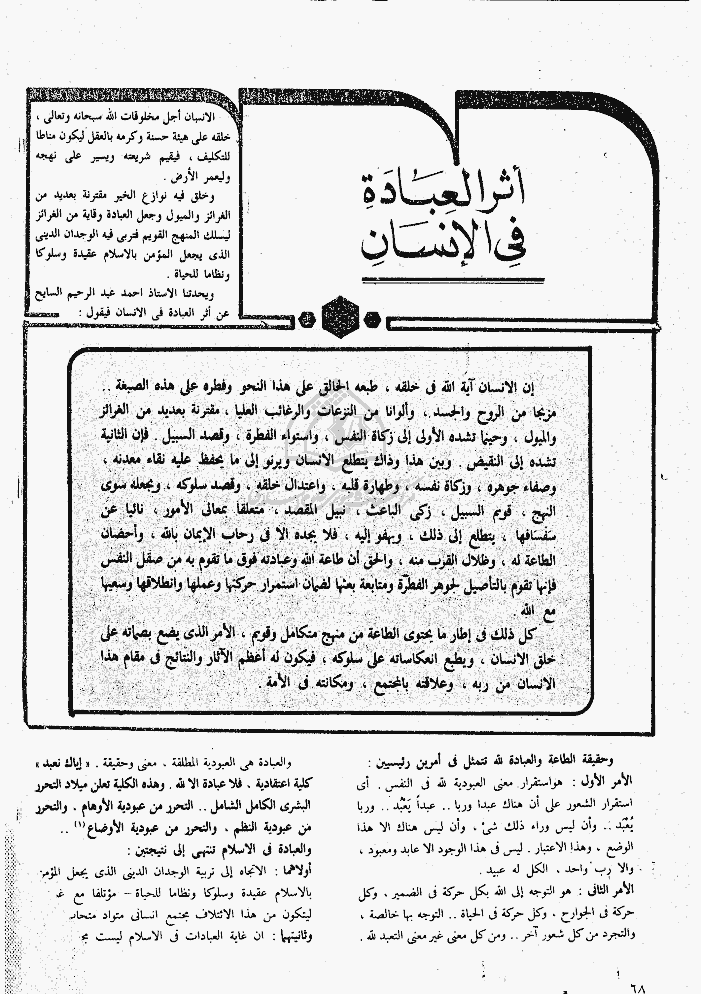 أثر العِبَادَةِ
فِي الإنسَانِ
الانسان أجل مخلوقات الله سبحانه وتعالى ،
خلقه على هيئة حسنة وكرمه بالعقل ليكون مناطا
للتكليف ، فيقيم شريعته ويسير على نهجه
وليعمر الأرض .
وخلق فيه نوازع الخير مقترنة بعديد من
الغرائز والميول وجعل العبادة وقاية من الغرائز
ليسلك المنهج القويم فتربى فيه الوجدان الدينى
الذى يجعل المؤمن بالاسلام عقيدة وسلوكا
ونظاما للحياة .
ويحدثنا الاستاذ احمد عبد الرحيم السايح
عن أثر العبادة فى الانسان فيقول :
إن الانسان آية الله فى خلقه ، طبعه الخالق على هذا النحو وفطره على هذه الصبغة ..
مزيجا من الروح والجسد ، وألوانا من النزعات والرغائب العليا ، مقترنة بعديد من الغرائز
والميول ، وحينما تشده الأولى إلى زكاة النفس ، واستواء الفطرة ، وقصد السبيل . فإن الثانية
تشده إلى النقيض . وبين هذا وذاك يتطلع الانسان ويرنو إلى ما يحفظ عليه نقاء معدنه ،
وصفاء جوهره ، وزكاة نفسه ، وطهارة قلبه ، واعتدال خلقه ، وقصد سلوكه ، ويجعله سوى
النهج ، قويم السبيل ، زكى الباعث ، نبيل المقصد ، متعلقا بمعالى الأمور ، نائيا عن
سفسافها ، يتطلع إلى ذلك ، ويهفو إليه ، فلا يجده الا فى رحاب الإيمان بالله ، وأحضان
الطاعة له ، وظلال القرب منه ، والحق أن طاعة الله وعبادته فوق ما تقوم به من صقل النفس
فإنها تقوم بالتأصيل لجوهر الفطرة ومتابعة بعثها لضمان استمرار حركتها وعملها وانطلاقها وسعيها
مع الله .
كل ذلك فى إطار ما يحتوى الطاعة من منهج متكامل وقويم ، الأمر الذى يضع بصماته على
خلق الانسان ، ويطبع انعكاساته على سلوكه ، فيكون له أعظم الآثار والنتائج فى مقام هذا
الانسان من ربه ، وعلاقته بالمجتمع ، ومكانته فى الأمة .
وحقيقة الطاعة والعبادة لله تتمثل فى أمرين رئيسيين :
الأمر الأول : هو استقرار معنى العبودية لله فى النفس . أى
استقرار الشعور على أن هناك عبدا وربا .. عبداً يَعْبُد .. وربا
يُعْبَد .. وأن ليس وراء ذلك شئ ، وأن ليس هناك الا هذا
الوضع ، وهذا الاعتبار . ليس فى هذا الوجود الا عابد ومعبود ،
والا رب واحد ، الكل له عبيد .
الأمر الثانى : هو التوجه إلى الله بكل حركة فى الضمير ، وكل
حركة فى الجوارح ، وكل حركة فى الحياة .. التوجه بها خالصة ،
والتجرد من كل شعور آخر .. ومن كل معنى غير معنى التعبد لله .
والعبادة هى العبودية المطلقة ، معنى وحقيقة . « إياك نعبد »
كلية اعتقادية ، فلا عبادة الا لله . وهذه الكلية تعلن ميلاد التحرر
البشرى الكامل الشامل .. التحرر من عبودية الأوهام ، والتحرر
من عبودية النظم ، والتحرر من عبودية الأوضاع (١) ..
والعبادة فى الاسلام تنتهى إلى نتيجتين :
أولاهما : الاتجاه إلى تربية الوجدان الدينى الذى يجعل المؤمن
بالاسلام عقيدة وسلوكا ونظاما للحياة – مؤتلفا مع
ليتكون من هذا الائتلاف مجتمع انسانى متواد
وثانيتهما : ان غاية العبادات فى الاسلام ليست
٦٨